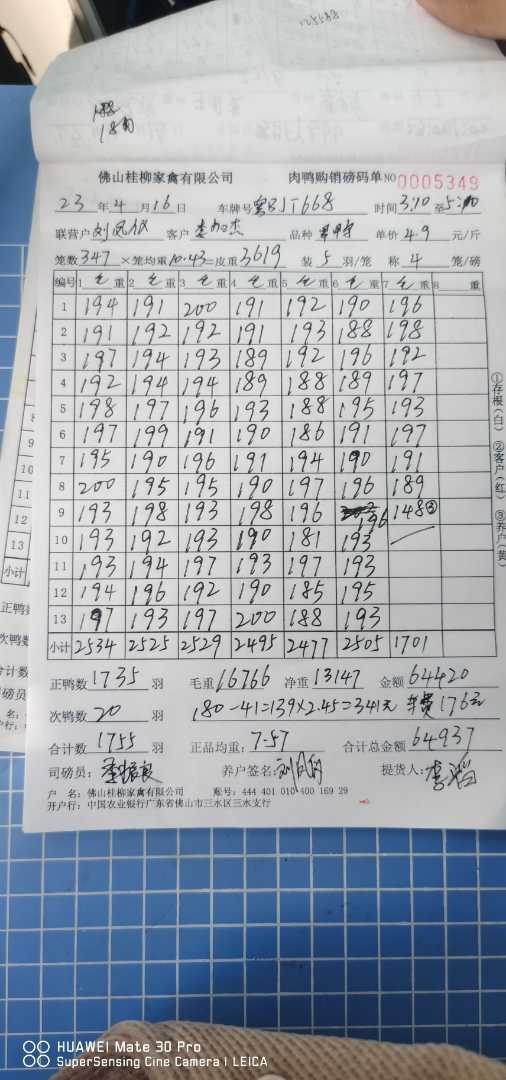 佛山桂柳家禽有限公司 肉鸭购销磅码单 NO 0005349
23 年 4 月 16 日 车牌号 粤BJT668 时间 3:10 至 5:10
联营户 客户 品种 单价 4.9 元/斤
笼数 347 ×笼均重 10.43=皮重 3619 装 5 羽/笼 称 4 笼/磅
编号 1 毛 重 2 毛 重 3 毛 重 4 毛 重 5 毛 重 6 毛 重 7 毛 重 8 重
1 194 191 200 191 192 190 196
2 191 192 192 191 193 188 198
3 197 194 193 189 192 196 192
4 192 194 194 189 188 189 197
5 198 197 196 193 188 195 193
6 197 199 191 190 186 191 197
7 195 190 196 191 194 190 191
8 200 195 195 190 197 196 189
9 193 198 193 198 196 196 148③
10 193 192 193 190 181 193
11 193 194 197 193 197 193
12 194 196 192 190 185 195
13 197 193 197 200 188 193
小计 2534 2525 2529 2495 2477 2505 1701
正鸭数 1735 羽 毛重 16766 净重 13147 金额 64420
次鸭数 20 羽 180-41=139×2.45=341元 车费176元
合计数 1755 羽 正品均重: 7.57 合计总金额 64937
司磅员: 养户签名: 提货人:
户 名: 佛山桂柳家禽有限公司 账号: 444 401 010 400 169 29
开户行: 中国农业银行广东省佛山市三水区三水支行
①存根(白) ②客户(红) ③养户(黄)
8
9
10
11
12
13
小计
正鸭数
次鸭数
合计数
司磅员
HUAWEI Mate 30 Pro
SuperSensing Cine Camera | LEICA